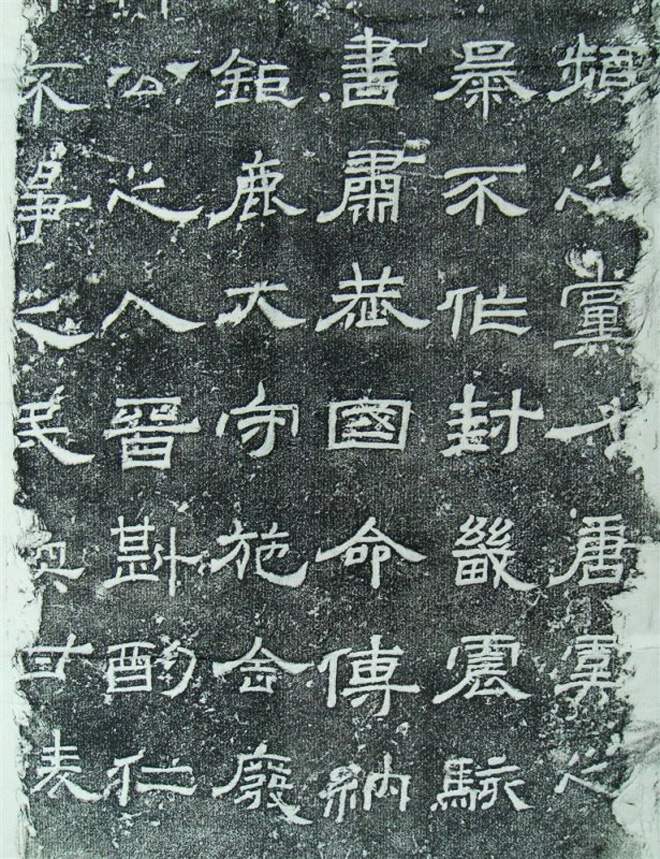 之黨唐虞之
暴不作封畿震駭
書肅恭國命傳納
鉅鹿大守施舍廢
公之入晉斟酌仁
不爭之民甘表